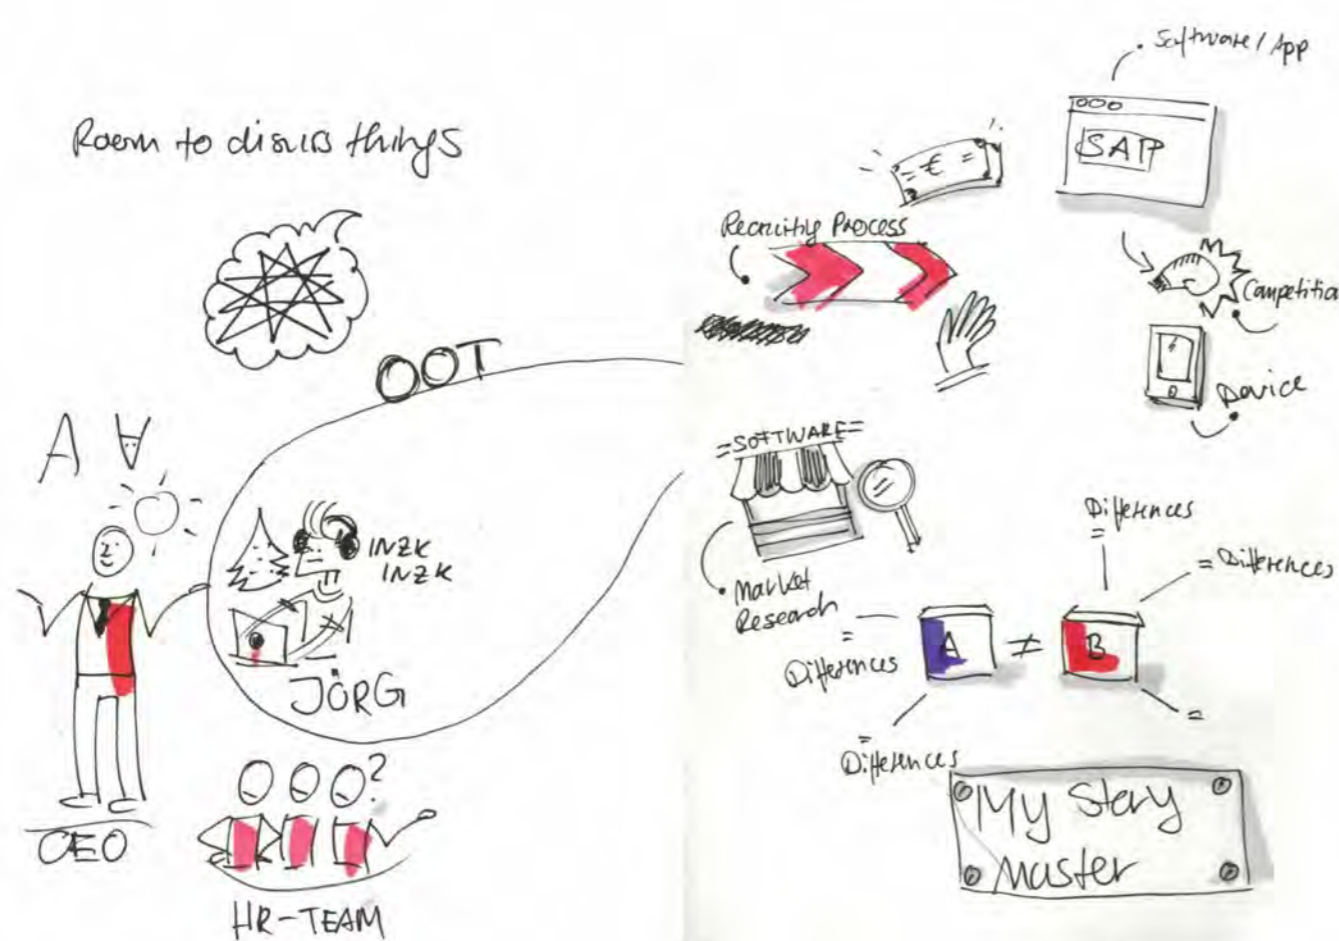 Room to discuss things
OOT
A
INZK
INZK
JÖRG
CEO
?
HR-TEAM
Software/App
SAP
= € =
Recruiting Process
Competitio
Device
=SOFTWARE=
Market
Research
=
Differences
=
Differences
A ≠ B
=
Differences
= Differences
=
My Story
Master